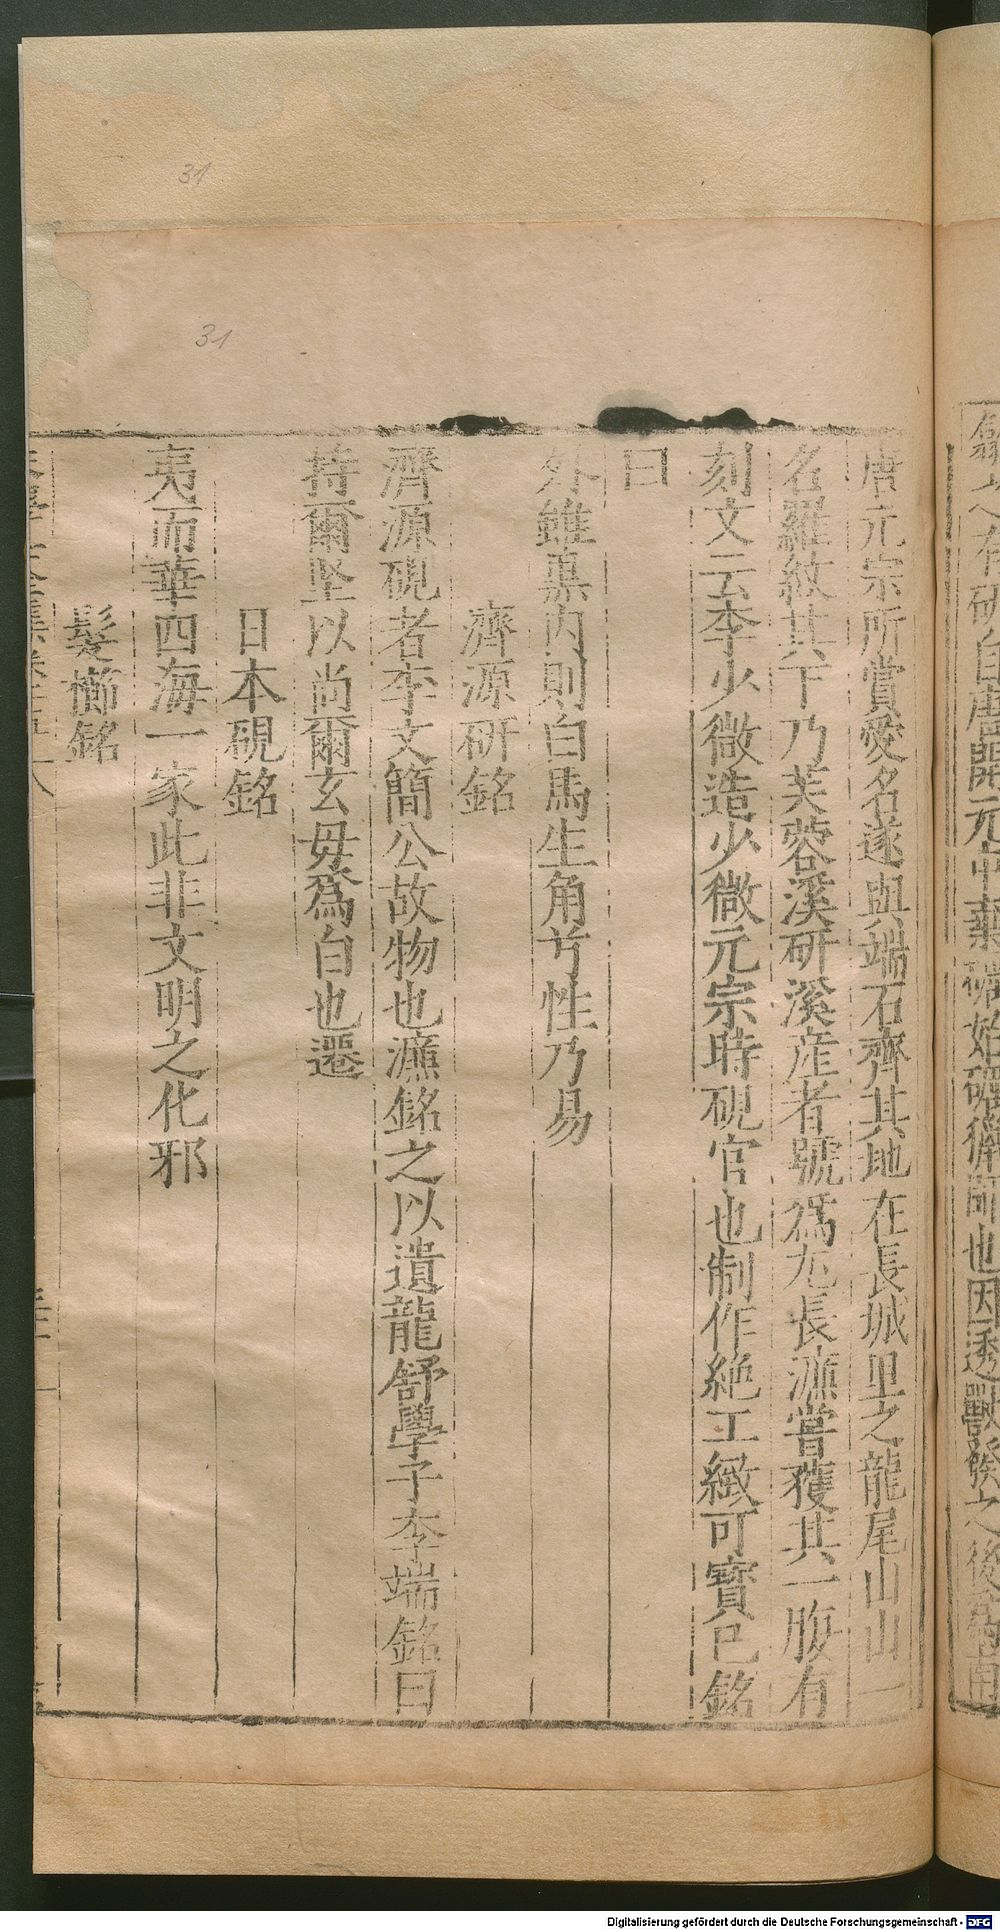 31
31
有研自唐開元中
始
師也因透獸
之後
唐元宗所賞愛名遂與端石齊其地在長城里之龍尾山山一
名羅紋其下乃芙蓉溪研溪産者號爲尤長濂嘗獲其一腹有
刻文云李少微造少微元宗時硯官也制作絶工緻可寶已銘
曰
外雖墨內則白馬生角兮性乃易
濟源研銘
濟源硯者李文簡公故物也濂銘之以遺龍舒學子李端銘曰
持爾堅以尚爾玄毋爲白也遷
日本硯銘
夷而華四海一家此非文明之化邪
髮櫛銘
Digitalisierung gefördert durch die Deutsche Forschungsgemeinschaft - DFG